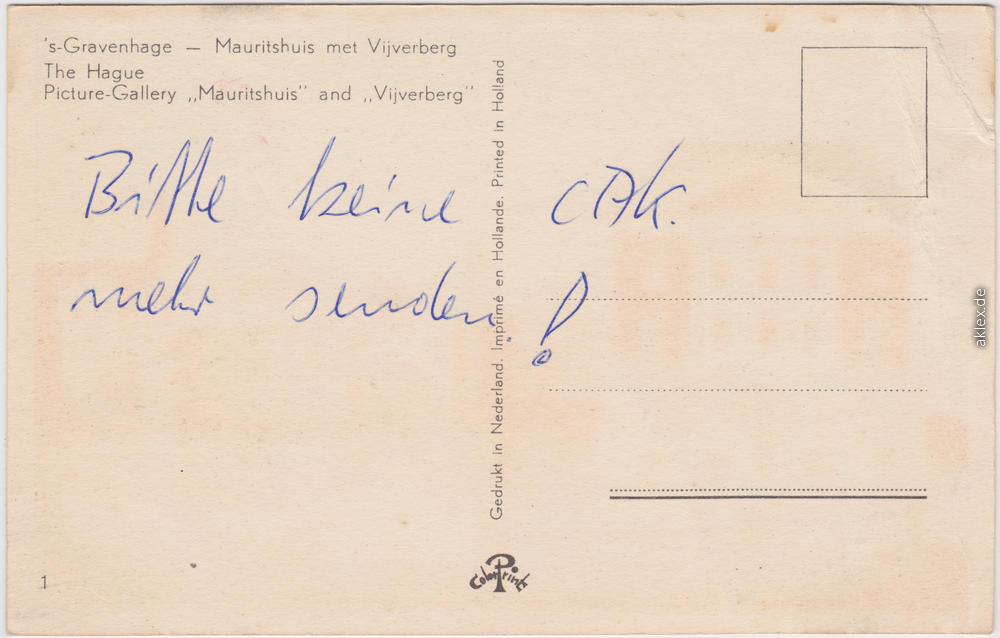 's-Gravenhage — Mauritshuis met Vijverberg
The Hague
Picture-Gallery „Mauritshuis" and „Vijverberg"
Bitte keine
mehr senden!
Gedrukt in Nederland. Imprimé en Hollande. Printed in Holland
1
ColorPrint
aklex.de